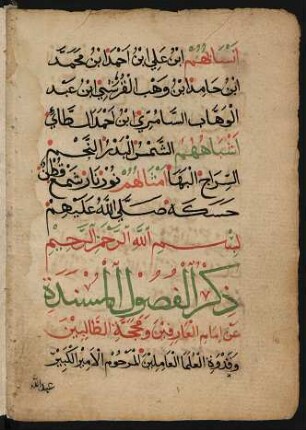 انسابهم ابن علي ابن احمد ابن محمد
ابن حامد ابن وهب القرشي ابن عبد
الوهاب السامري ابن احمد الطائي
اشباههم الشمس البدر النجم
السراج البها امثالهم نور نار شمع قطن
حسكة صلى الله عليهم
بسم الله الرحمن الرحيم
ذكر الفصول المسندة
عن امام العارفين ومحجة الطالبين
وقدوة العلما العاملين المرحوم الامير الكبير
عبدالله